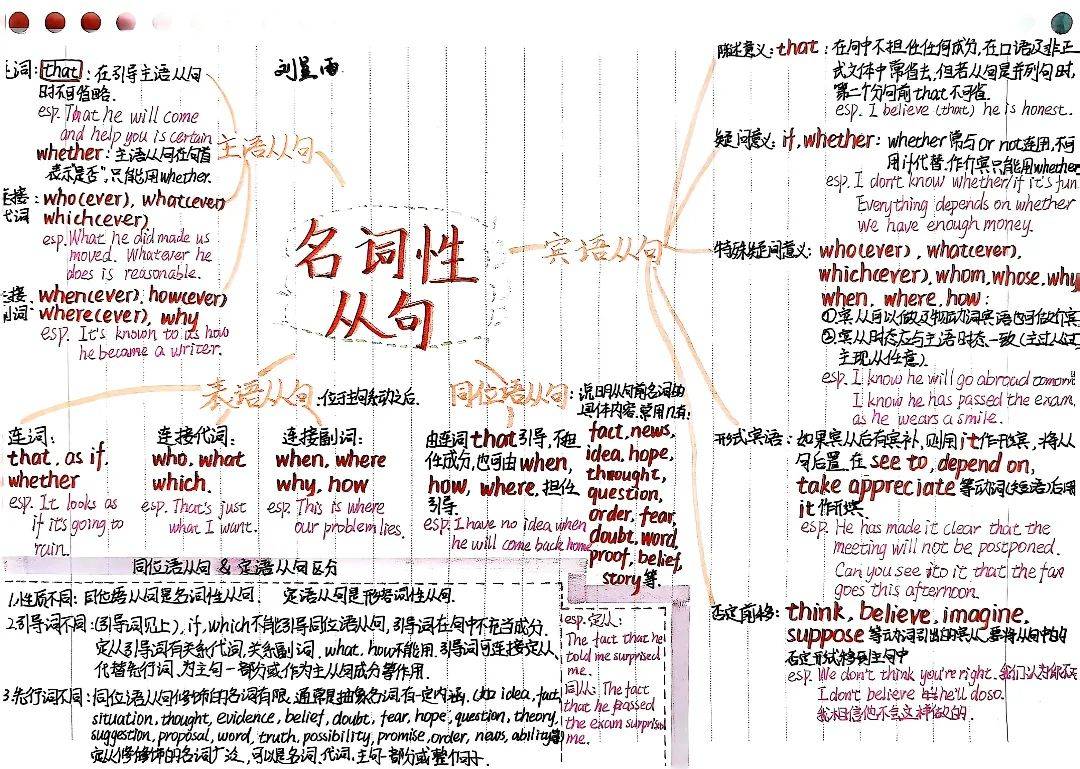 刘昱雨
名词性
从句
主语从句
词: that: 在引导主语从句
时不可省略.
esp. That he will come
and help you is certain
whether: 主语从句在句首
表示"是否",只能用whether.
连接: who(ever), what(ever)
代词 which(ever)
esp. What he did made us
moved. Whatever he
does is reasonable.
连接 when(ever), how(ever)
副词: where(ever), why
esp. It's known to us how
he became a writer.
宾语从句
陈述意义: that: 在句中不担任任何成分,在口语及非正
式文体中常省去,但若从句是并列句时,
第二个分句前that不可省.
esp. I believe (that) he is honest.
疑问意义: if, whether: whether常与or not连用,不可
用if代替.作介宾只能用whether
esp. I don't know whether/if it's fun
Everything depends on whether
We have enough money.
特殊疑问意义: who(ever), what(ever),
which(ever), whom, whose, why
when, where, how:
①宾从可以做及物动词宾语也可做介宾
②宾从时态应与主语时态一致(主过从过
主现从任意).
esp. I know he will go abroad
I know he has passed the exam,
as he wears a smile.
形式宾语: 如果宾从后有宾补,则用it作形宾,将从
句后置,在see to, depend on,
take appreciate等动词(短语)后用
it作形宾.
esp. He has made it clear that the
meeting will not be postponed.
Can you see to it that the fax
goes this afternoon.
否定前移: think, believe, imagine,
suppose等动词引出的宾从,要将从句中的
否定形式移到主句中
esp. We don't think you're right. 我们认为你不
I don't believe he'll do so.
我相信他不会这样做的.
表语从句: 位于主句系动之后.
连词:
that, as if,
whether
esp. It looks as
if it's going to
rain.
连接代词:
who, what
which.
esp. That's just
what I want.
连接副词:
when, where
why, how
esp. This is where
our problem lies.
同位语从句: 说明从句前名词的
具体内容,常用几有:
fact, news,
idea, hope,
throught,
question,
order, fear,
doubt, word,
proof, belief,
story等.
由连词that引导,不担
任成分,也可由when,
how, where,担任
引导.
esp. I have no idea when
he will come back home
同位语从句 & 定语从句区分
1.性质不同: 同位语从句是名词性从句. 定语从句是形容词性从句.
2.引导词不同: (引导词见上), if, which不能引导同位语从句,引导词在句中不充当成分.
定从引导词有关系代词,关系副词. what, how不能用.引导词可连接定从、
代替先行词,为主句一部分或作为主从句成分等作用.
3.先行词不同: 同位语从句修饰的名词有限,通常是抽象名词有一定内涵. (如 idea, fact,
situation, thought, evidence, belief, doubt, fear, hope, question, theory,
suggestion, proposal, word, truth, possibility, promise, order, news, ability等)
定从修饰的名词广泛,可以是名词、代词、主句一部分或整个句子.
esp. 定从:
The fact that he
told me surprised
me.
同从: The fact
that he passed
the exam surprised
me.